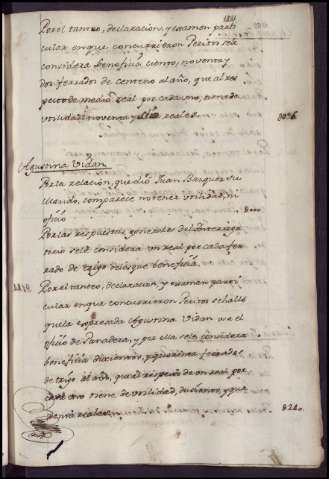 Por el tanteo, declarazion, y examen parti
cular en que concurrieron Peritos se le
considera beneficia ciento, noventa y
dos ferrados de centeno al año, que al res
pecto de medio real por cada uno, tiene de
utilidad noventa y seis reales
Agustina Vidan
Por la relazion, que dio Juan Basquez su
Marido, comparece no tener utilidad, ni
oficio
Por las respuestas generales del Interroga
torio se le considera un real por cada fer
rado de trigo de los que beneficia
Por el tanteo, declarazion, y examen parti
cular en que concurrieron Peritos se hallo
que la expresada Agustina Vidan usa el
oficio de Panadera, y por ella se la considera
beneficia ferrados
de trigo al año, que al respecto de un real por
cada uno tiene de utilidad, y que
reales